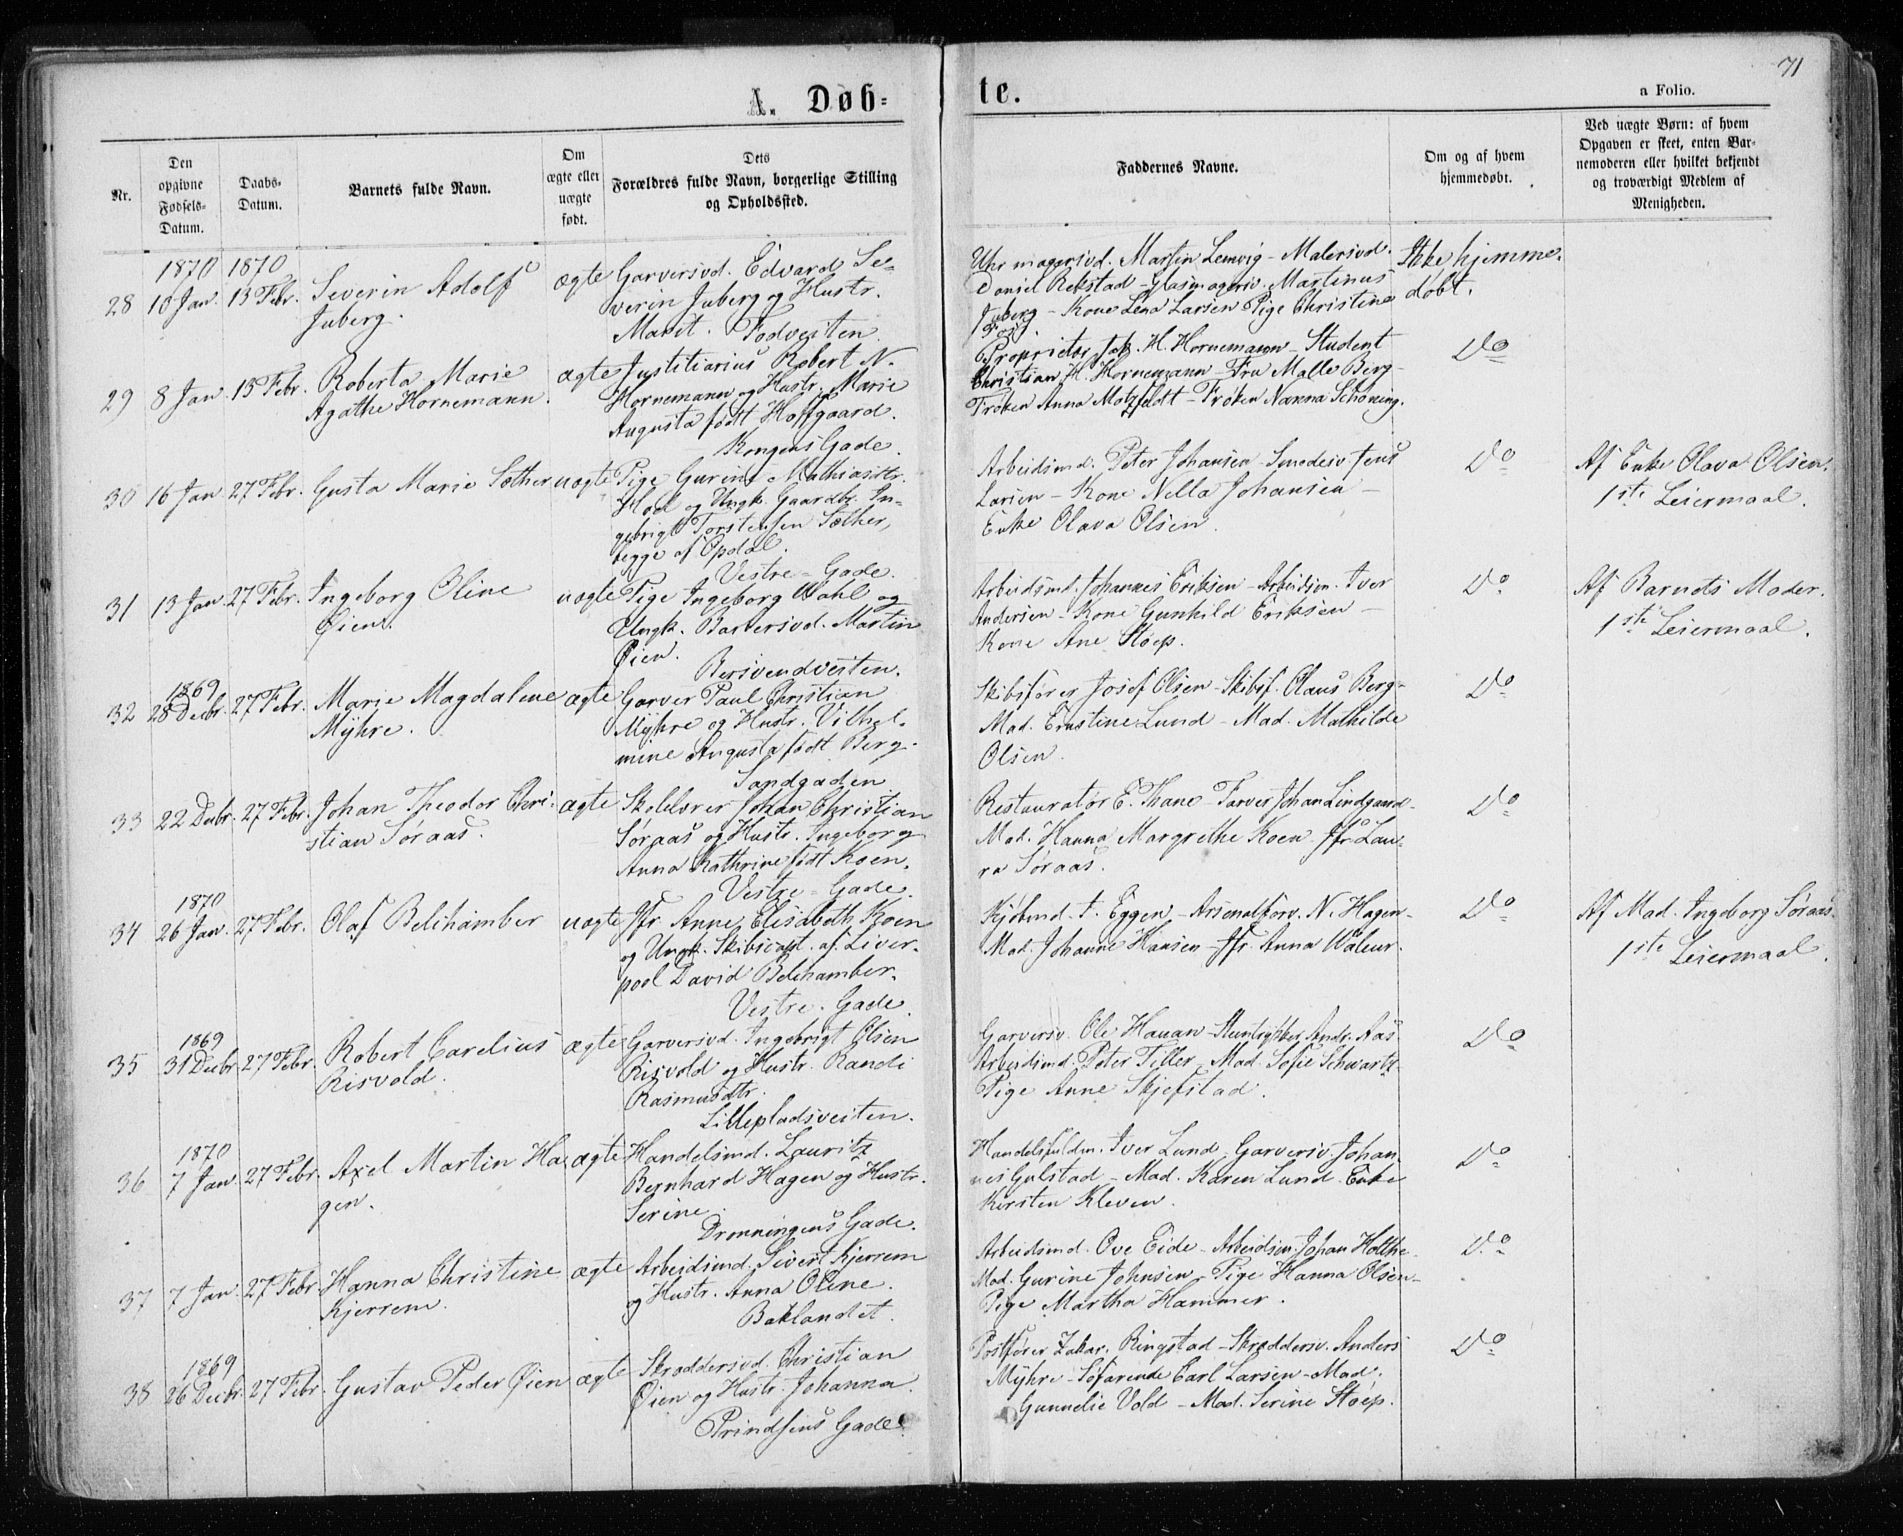 71
A. Døb-
te.
a Folio.
Nr.
Den
opgivne
Fødsels-
Datum.
Daabs-
Datum.
Barnets fulde Navn.
Om
ægte eller
uægte
født.
Dets
Forældres fulde Navn, borgerlige Stilling
og Opholdssted.
Faddernes Navne.
Om og af hvem
hjemmedøbt.
Ved uægte Børn: af hvem
Opgaven er skeet, enten Bar-
nemoderen eller hvilket bekjendt
og troværdigt Medlem af
Menigheden.
1870 1870
28 10 Jan. 13 Febr. Severin Adolf
Juberg.
ægte
Garversvd. Edvard Se-
verin Juberg og Hustr.
Marit. Fodveiten.
Uhrmagersvd. Martin Lemvig - Malersvd.
Daniel Rekstad - Glasmagersv. Martinus
Juberg - Kone Lena Larsen Pige Christine
Ikke hjemme-
døbt.
29 8 Jan. 13 Febr. Roberta Marie
Agathe Hornemann.
ægte
Justitiarius Robert N.
Hornemann og Hustr. Marie
Augusta født Hoffgaard.
Kongens Gade.
Proprietær Jak. H. Hornemann - Student
Christian H. Hornemann - Fru Malle Berg -
Frøken Anna Motzfeldt - Frøken Nanna Schøning.
Do
30 16 Jan. 27 Febr. Gusta Marie Sæther
uægte
Pige Gurine Mathiasdtr.
Hol og Ungk. Gaardbr. In-
gebrigt Torstensen Sæther,
begge af Opdal.
Vestre-Gade.
Arbeidsmd. Peter Johansen - Smedesv. Jens
Larsen - Kone Nella Johansen -
Enke Olava Olsen.
Do
Af Enke Olava Olsen.
1ste Leiermaal.
31 13 Jan. 27 Febr. Ingeborg Oline
Øien.
uægte
Pige Ingeborg Wahl og
Ungk. Barbersvd. Martin
Øien.
Bersvendveiten.
Arbeidsmd. Johannes Eriksen - Arbeidsm. Iver
Andersen - Kone Gunhild Eriksen -
Kone Ane Støep.
Do
Af Barnets Moder.
1ste Leiermaal.
1869
32 28 Decbr. 27 Febr. Marie Magdalene
Myhre.
ægte
Garver Paul Christian
Myhre og Hustr. Vilhel-
mine Augusta født Berg.
Sandgaden
Skibsfører Josef Olsen - Skibsf. Olaus Berg -
Mad. Ernstine Lund - Mad. Mathilde
Olsen.
Do
33 22 Decbr. 27 Febr. Johan Theodor Chri-
stian Søraas.
ægte
Skolelærer Johan Christian
Søraas og Hustr. Ingeborg
Anna Kathrine født Koen.
Vestre-Gade.
Restauratør E. Thane - Farver Johan Lindgaard -
Mad. Hanna Margrethe Koen Jfr. Lau-
ra Søraas.
Do
1870
34 26 Jan. 27 Febr. Olaf Belchamber
uægte
Jfr. Anne Elisabeth Koen
og Ungk. Skibscapt. af Liver-
pool David Belchamber.
Vestre-Gade.
Kjøbmd. A. Eggen - Arsenalforv. N. Hagen -
Mad. Johanne Hansen - Jfr. Anna Waleur.
Do
Af Mad. Ingeborg Søraas.
1ste Leiermaal.
1869
35 31 Decbr. 27 Febr. Robert Carelius
Risvold.
ægte
Garversvd. Ingebrigt Olsen
Risvold og Hustr. Randi
Rasmusdtr.
Lillepladsveiten.
Garversv. Ole Hauan - Stentrykker Andr. Aas -
Arbeidsmd. Peter Tiller - Mad. Sofie Schwartz -
Pige Anne Skjefstad.
Do
1870
36 7 Jan. 27 Febr. Axel Martin Ha-
gen.
ægte
Handelsmd. Lauritz
Bernhard Hagen og Hustr.
Serine.
Dronningens Gade.
Handelsfuldm. Iver Lund - Garversv. Johan-
nes Gulstad - Mad. Karen Lund - Enke
Kirsten Kleven.
Do
37 7 Jan. 27 Febr. Hanna Christine
Kjerrem.
ægte
Arbeidsmd. Sivert Kjerrem
og Hustr. Anna Oline.
Baklandet.
Arbeidsmd. Ove Eide - Arbeidsm. Johan Holthe -
Mad. Gurine Johnsen - Pige Hanna Olsen -
Pige Martha Hammer.
Do
1869
38 26 Decbr. 27 Febr. Gustav Peder Øien
ægte
Skræddersvd. Christian
Øien og Hustr. Johanna.
Prindsens Gade.
Postfører Zakar. Ringstad - Skræddersv. Anders
Myhre - Søfarende Carl Larsen - Mad.
Gunnelie Vold - Mad. Serine Støep.
Do